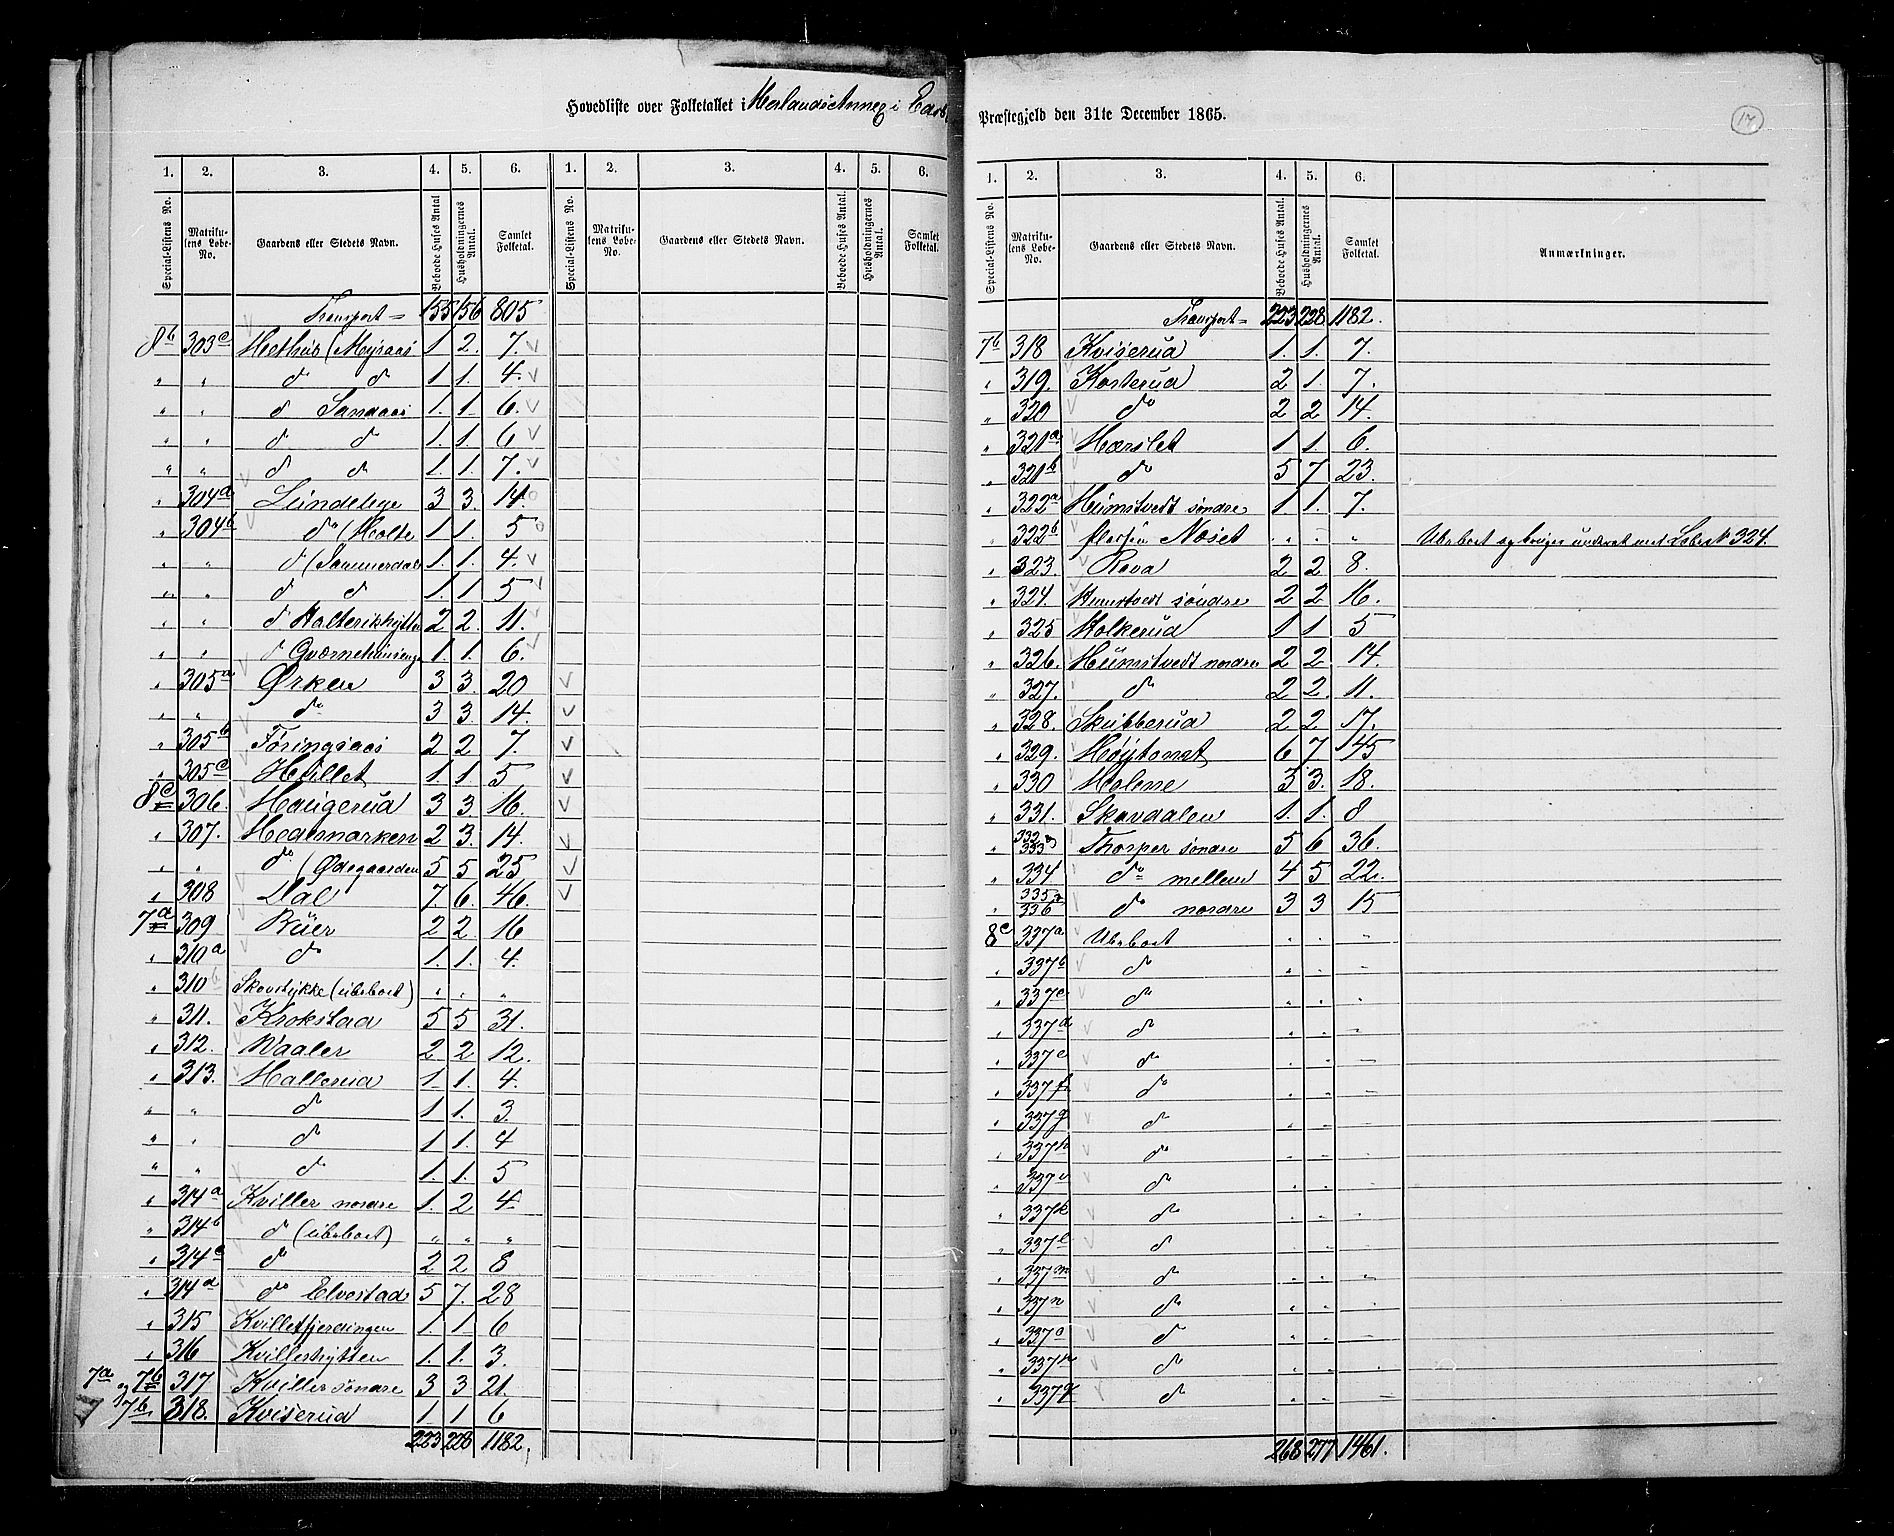 Hovedliste over Folketallet i Herlands Annex i Eids
1. 2. 3. 4. 5. 6. 1. 2. 3. 4. 5. 6.
Special-Listens No. Matrikulens Løbe-No. Gaardens eller Stedets Navn. Beboede Huses Antal Husholdningernes Antal. Samlet Folketal. Special-Listens No. Matrikulens Løbe-No. Gaardens eller Stedets Navn. Beboede Huses Antal. Husholdningernes Antal. Samlet Folketal.
Transport = 155 156 805
8b 303c Hethus (Myraas 1. 2. 7.
" " do do 1 1. 4.
" " do Sandaas 1. 1. 6.
" " do do 1. 1. 6
" " do do 1. 1. 7.
" 304a Lundebye 3 3. 14.
" 304b do (Holte 1 1. 5
" " do (Sammerdal 1. 1. 4.
" " do do 1. 1 5
" " do Halterikhytten 2 2. 11.
" " do Gværnehusenge 1. 1. 6.
" 305a Ørken 3 3. 20
" " do 3 3. 14.
" 305b Føringsaas 2 2 7.
" 305c Hvillet 1. 1. 5
8c 306. Haugerud 3 3. 16.
" 307. Hedemarken 2 3. 14.
" " do (Ødegaarden 5 5 25
" 308 Dal 7. 6. 46.
7a 309 Buer 2 2. 16
" 310a do 1. 1. 4.
" 310b Skovstykke (ubeboet) " " "
" 311. Krokstad 5 5 31.
" 312. Waaler 2 2 12.
" 313. Hallerud 1. 1. 4.
" " do 1 1. 3.
" " do 1 1. 4
" " do 1. 1. 5
" 314a Kviller nordre 1. 2 4
" 314b do (ubeboet) " " "
" 314c do 2 2 8
" 314d do Elvestad 5 7. 28
" 315 Kvillerfjerdingen 1. 1 6
" 316 Kvillerhytten 1. 1. 3.
7a og 7b 317 Kviller søndre 3 3 21.
7b 318. Kviserud 1. 1 6
223 228 1182.
Præstegjeld den 31te December 1865.
17
1. 2. 3. 4. 5. 6.
Special-Listens No. Matrikulens Løbe-No. Gaardens eller Stedets Navn. Beboede Huses Antal. Husholdningernes Antal. Samlet Folketal. Anmærkninger.
Transport = 223 228 1182.
7b 318 Kviserud 1. 1. 7.
" 319. Kosterud 2 1. 7.
" 320 do 2 2 14.
" 321a Hærslet 1 1. 6.
" 321b do 5 7 23.
" 322a Humstvedt søndre 1. 1. 7.
" 322b Noset " " " Ubeboet og bruges underet med Løbe No 324.
" 323. Rova 2 2 8.
" 324. Humstvedt søndre 2 2 16.
" 325 Holkerud 1 1 5
" 326. Humstvedt nordre 2 2 14.
" 327. do 2 2. 11.
" 328. Skubberud 2 2 17.
" 329. Høytomt 6 7 45
" 330 Holene 3 3. 18.
" 331. Skavdalen 1. 1. 8
" 332 333 Thorper søndre 5 6 36.
" 334. do mellem 4 5 22.
" 335 336 do nordre 3 3 15
8c 337a Ubeboet " " "
" 337b do " " "
" 337c do " " "
" 337d do " " "
" 337e do " " "
" 337f do " " "
" 337g do " " "
" 337h do " " "
" 337i do " " "
" 337k do " " "
" 337l do " " "
" 337m do " " "
" 337n do " " "
" 337o do " " "
" 337p do " " "
" 337q do " " "
268 277 1461.